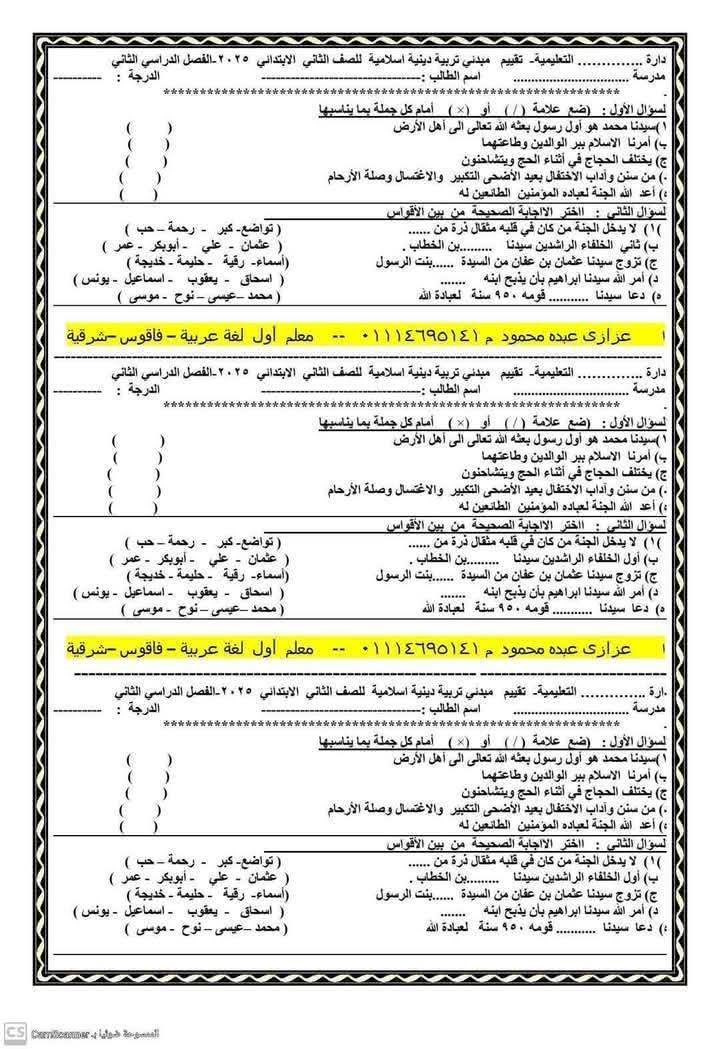 دارة ............. التعليمية- تقييم مبدئي تربية دينية اسلامية للصف الثاني الابتدائي ٢٠٢٥-الفصل الدراسي الثاني
مدرسة .............................. اسم الطالب :------------------------------ الدرجة : ----------
************************************************************
لسؤال الأول : (ضع علامة ( / ) أو ( × ) أمام كل جملة بما يناسبها
١)سيدنا محمد هو أول رسول بعثه الله تعالى الى أهل الأرض ( )
ب) أمرنا الاسلام ببر الوالدين وطاعتهما ( )
ج) يختلف الحجاج في أثناء الحج ويتشاحنون ( )
.) من سنن وآداب الاحتفال بعيد الأضحى التكبير والاغتسال وصلة الأرحام ( )
ه) أعد الله الجنة لعباده المؤمنين الطائعين له ( )
لسؤال الثاني : اختر الااجابة الصحيحة من بين الأقواس
١)) لا يدخل الجنة من كان في قلبه مثقال ذرة من ...... ( تواضع- كبر - رحمة – حب )
ب) ثاني الخلفاء الراشدين سيدنا .........بن الخطاب . ( عثمان - علي - أبوبكر - عمر )
ج) تزوج سيدنا عثمان بن عفان من السيدة ......بنت الرسول (أسماء- رقية - حليمة - خديجة )
د) أمر الله سيدنا ابراهيم بأن يذبح ابنه ....... ( اسحاق - يعقوب - اسماعيل - يونس )
ه) دعا سيدنا ........... قومه ٩٥٠ سنة لعبادة الله ( محمد –عيسى – نوح - موسى )
ا عزازى عبده محمود م ٠١١١٤٦٩٥١٤١ -- معلم أول لغة عربية – فاقوس –شرقية
دارة ............. التعليمية- تقييم مبدئي تربية دينية اسلامية للصف الثاني الابتدائي ٢٠٢٥-الفصل الدراسي الثاني
مدرسة .............................. اسم الطالب :------------------------------ الدرجة : ----------
************************************************************
لسؤال الأول : (ضع علامة ( / ) أو ( × ) أمام كل جملة بما يناسبها
١)سيدنا محمد هو أول رسول بعثه الله تعالى الى أهل الأرض ( )
ب) أمرنا الاسلام ببر الوالدين وطاعتهما ( )
ج) يختلف الحجاج في أثناء الحج ويتشاحنون ( )
.) من سنن وآداب الاحتفال بعيد الأضحى التكبير والاغتسال وصلة الأرحام ( )
ه) أعد الله الجنة لعباده المؤمنين الطائعين له ( )
لسؤال الثاني : اختر الااجابة الصحيحة من بين الأقواس
١)) لا يدخل الجنة من كان في قلبه مثقال ذرة من ...... ( تواضع- كبر - رحمة – حب )
ب) أول الخلفاء الراشدين سيدنا .........بن الخطاب . ( عثمان - علي - أبوبكر - عمر )
ج) تزوج سيدنا عثمان بن عفان من السيدة ......بنت الرسول (أسماء- رقية - حليمة - خديجة )
د) أمر الله سيدنا ابراهيم بأن يذبح ابنه ....... ( اسحاق - يعقوب - اسماعيل - يونس )
ه) دعا سيدنا ........... قومه ٩٥٠ سنة لعبادة الله ( محمد –عيسى – نوح - موسى )
ا عزازى عبده محمود م ٠١١١٤٦٩٥١٤١ -- معلم أول لغة عربية – فاقوس –شرقية
.ارة ............. التعليمية- تقييم مبدئي تربية دينية اسلامية للصف الثاني الابتدائي ٢٠٢٥-الفصل الدراسي الثاني
مدرسة .............................. اسم الطالب :------------------------------ الدرجة : ----------
************************************************************
لسؤال الأول : (ضع علامة ( / ) أو ( × ) أمام كل جملة بما يناسبها
١)سيدنا محمد هو أول رسول بعثه الله تعالى الى أهل الأرض ( )
ب) أمرنا الاسلام ببر الوالدين وطاعتهما ( )
ج) يختلف الحجاج في أثناء الحج ويتشاحنون ( )
.) من سنن وآداب الاحتفال بعيد الأضحى التكبير والاغتسال وصلة الأرحام ( )
ه) أعد الله الجنة لعباده المؤمنين الطائعين له ( )
لسؤال الثاني : اختر الااجابة الصحيحة من بين الأقواس
١)) لا يدخل الجنة من كان في قلبه مثقال ذرة من ...... ( تواضع- كبر - رحمة – حب )
ب) أول الخلفاء الراشدين سيدنا .........بن الخطاب . ( عثمان - علي - أبوبكر - عمر )
ج) تزوج سيدنا عثمان بن عفان من السيدة ......بنت الرسول (أسماء- رقية - حليمة - خديجة )
د) أمر الله سيدنا ابراهيم بأن يذبح ابنه ....... ( اسحاق - يعقوب - اسماعيل - يونس )
ه) دعا سيدنا ........... قومه ٩٥٠ سنة لعبادة الله ( محمد –عيسى – نوح - موسى )
CS CamScanner الممسوحة ضوئيا بـ